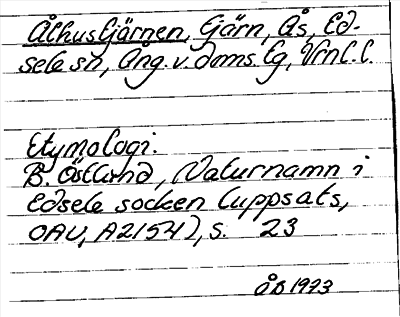 Ålhustjärnen, tjärn, Ås, Ed-
sele sn, Ång. v. doms. tg, Vrnl. l.
Etymologi:
B. Östlund, Naturnamn i
Edsele socken (uppsats,
OAU, A2154), s. 23
ÅB 1973